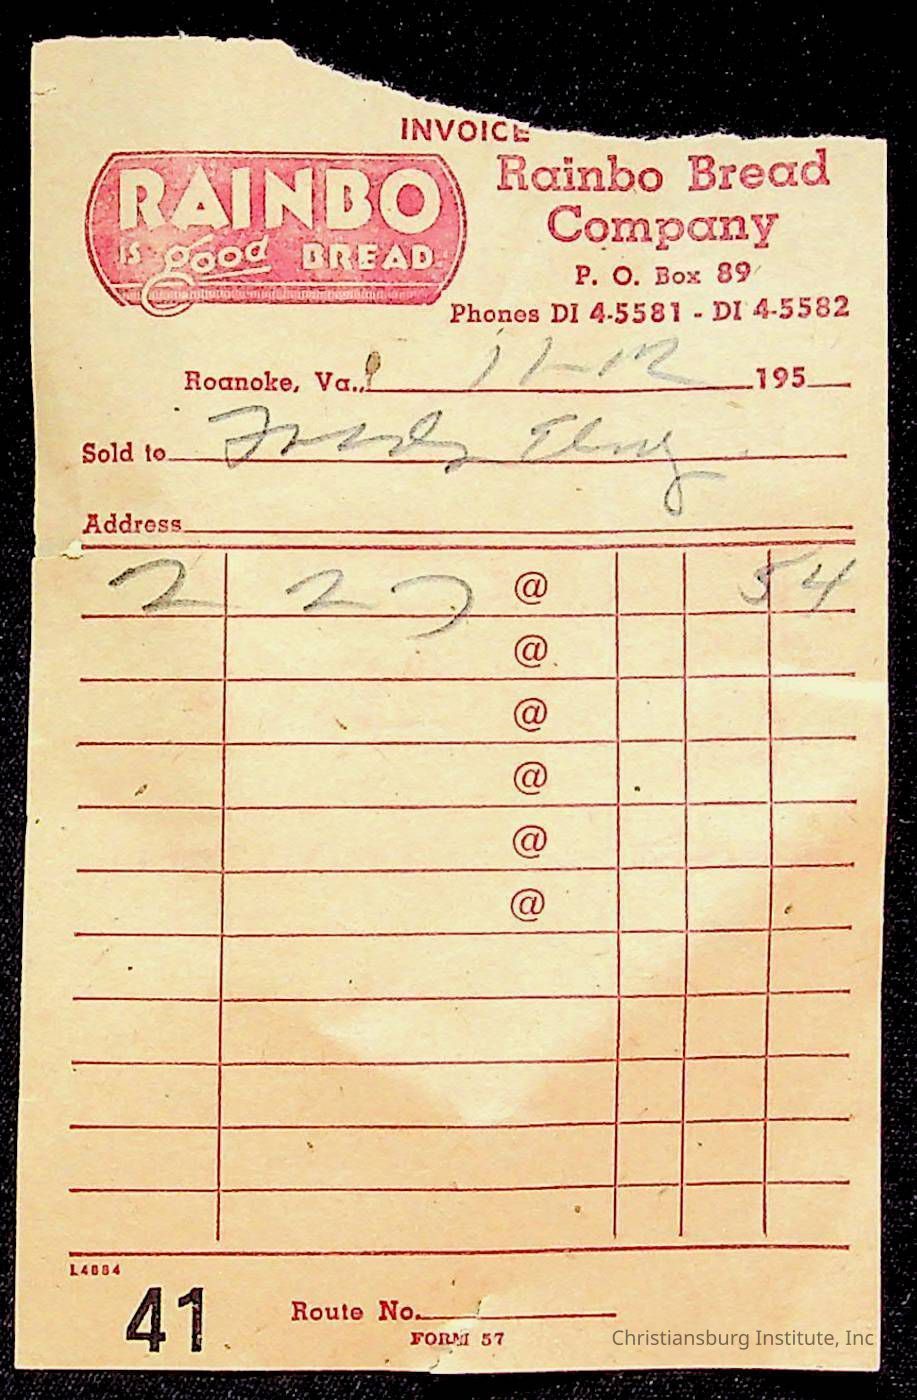 INVOICE
RAINBO
IS good BREAD
Rainbo Bread
Company
P. O. Box 89
Phones DI 4-5581 - DI 4-5582
Roanoke, Va., 11-12 195
Sold to
Address
2 27 @ 54
@
@
@
@
@
L4884
41 Route No.
FORM 57
Christiansburg Institute, Inc